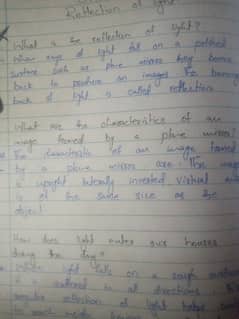 Reflection of light
What is the reflection of light?
When rays of light fall on a polished
surface such as plane mirror they bounce
back to produce an images the bouncing
back of light is called reflection
What are the characteristics of an
image formed by a plane mirror?
The characteristic of an image formed
by a plane mirror are. The image
is upright laterally inverted virtual
is of the same size as the
object
How does light enter our houses
during the day?
light falls on a rough surface
it is scattered in all directions
reflection of light
to reach